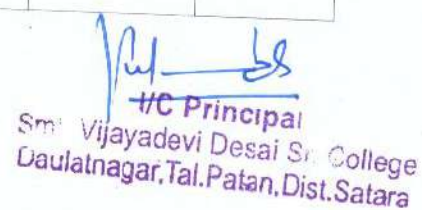 I/C Principal
Smt Vijayadevi Desai Sr. College
Daulatnagar, Tal. Patan, Dist. Satara